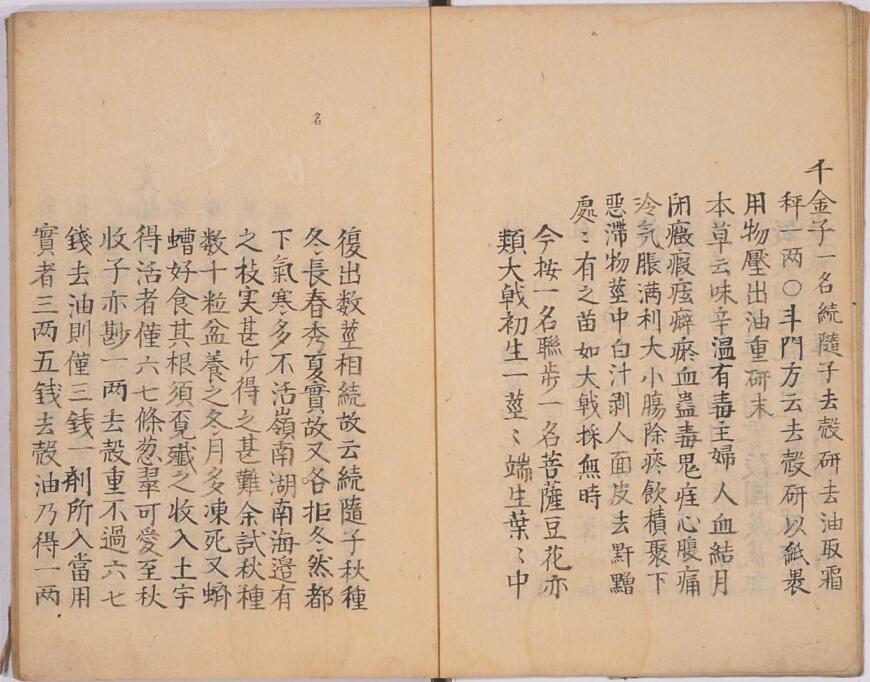 千金子一名続隨子去殻研去油取霜
秤一两〇斗門方云去殻研以紙裹
用物壓出油重研末
本草云味辛温有毒主婦人血結月
閉癥瘕痃癖瘀血蠱毒鬼疰心腹痛
冷気脹満利大小腸除痰飲積聚下
惡滞物莖中白汁剥人面皮去䵟䵳
處〻有之苗如大戟採無時
今按一名聯步一名菩薩豆花亦
類大戟初生一莖〻端生葉〻中
復出数莖相続故云続隨子秋種
冬長春秀夏實故又名拒冬然都
下氣寒多不活嶺南湖南海邉有
之枝实甚少得之甚難余試秋種
数十粒盆養之冬月多凍死又蠐
螬好食其根須覔殱之收入土宇
得活者僅六七條葱翠可愛至秋
收子亦尠一两去殻重不過六七
錢去油則僅三錢一剤所入當用
實者三两五錢去殻油乃得一两
名